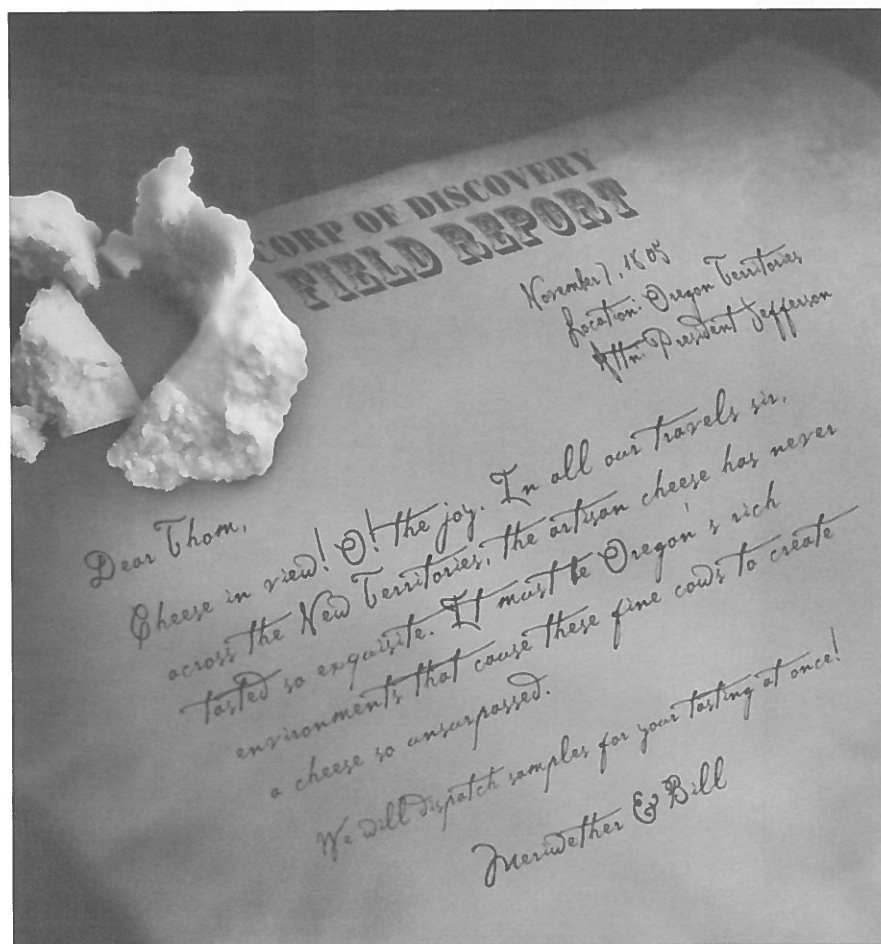 CORP OF DISCOVERY
FIELD REPORT
November 7, 1805
Location: Oregon Territories
Attn: President Jefferson
Dear Thom,
Cheese in view! O! the joy. In all our travels sir,
across the New Territories, the artisan cheese has never
tasted so exquisite. It must be Oregon's rich
environments that cause these fine cows to create
a cheese so unsurpassed.
We will dispatch samples for your tasting at once!
Meriwether & Bill